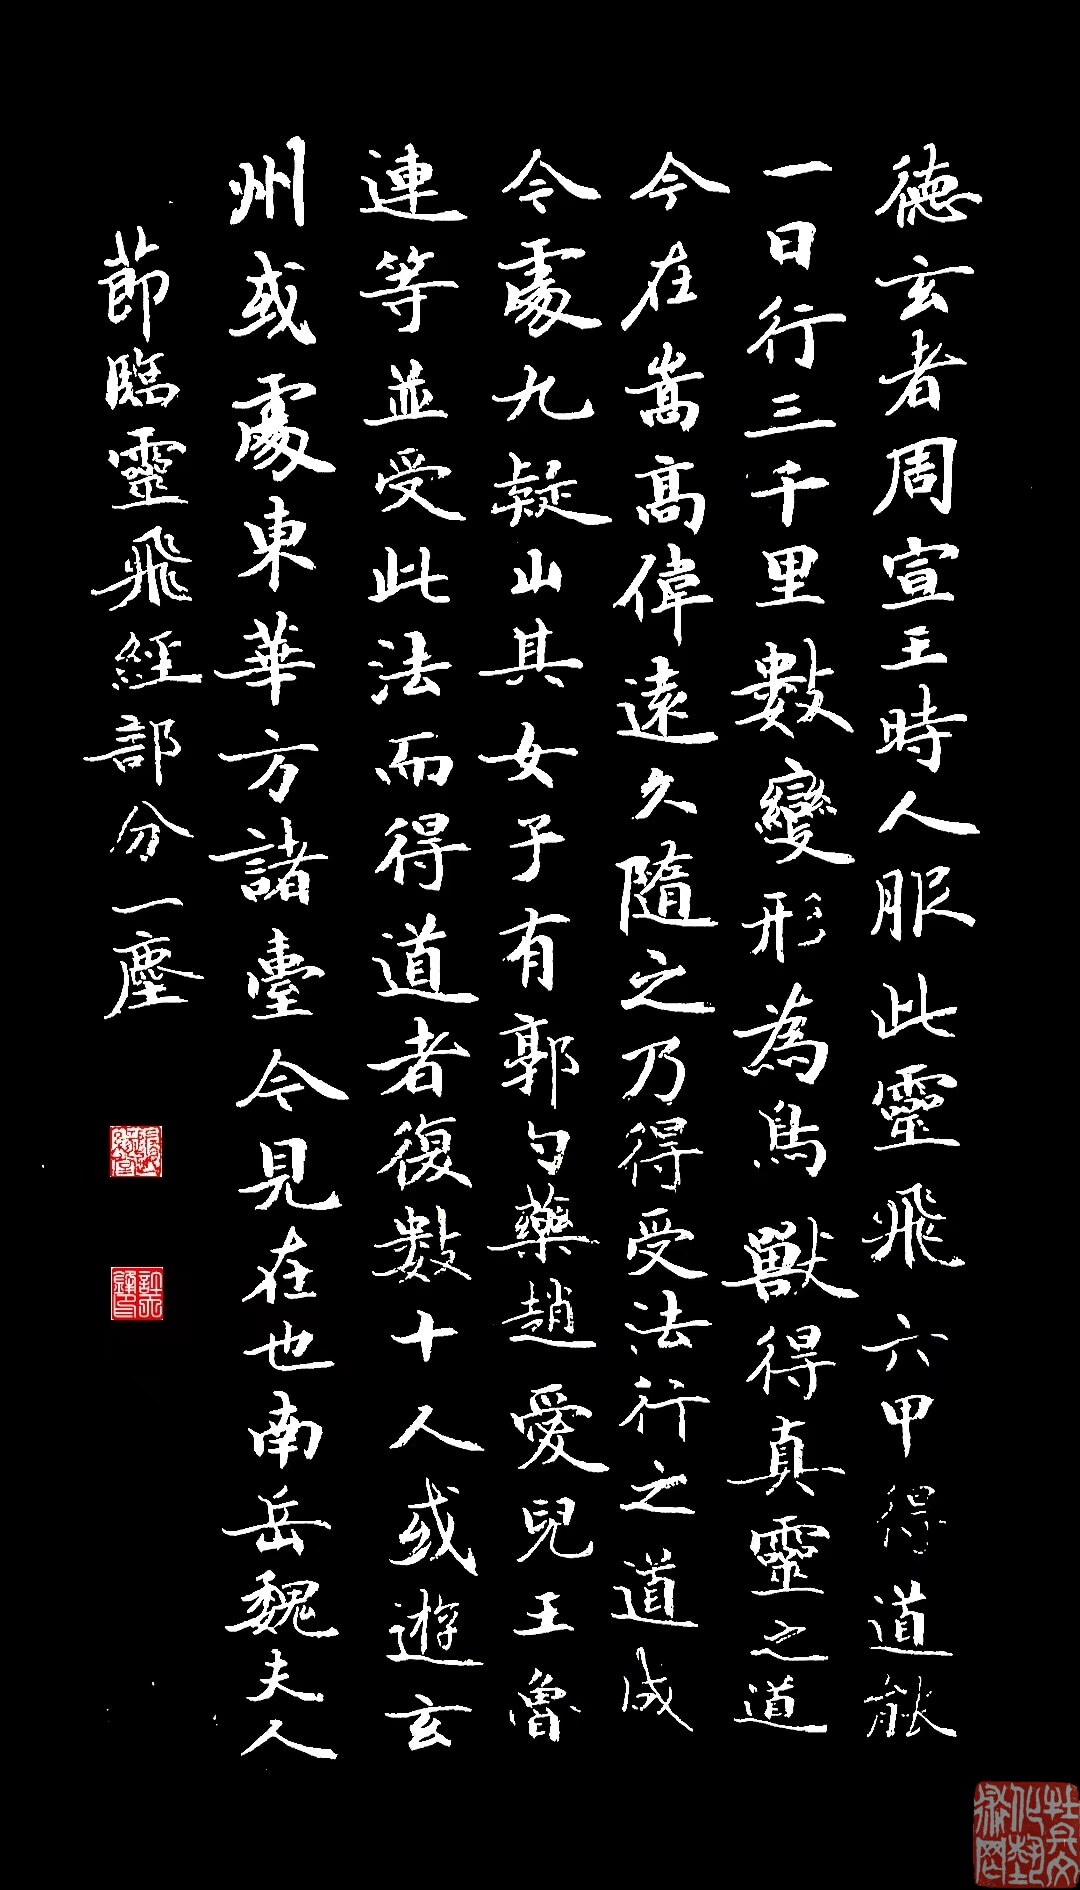 德玄者周宣王時人服此靈飛六甲得道能
一日行三千里數變形為鳥獸得真靈之道
今在嵩高偉遠久隨之乃得受法行之道成
今處九疑山其女子有郭勺藥趙愛兒王魯
連等並受此法而得道者復數十人或遊玄
州或處東華方諸臺今見在也南岳魏夫人
節臨靈飛經部分一塵